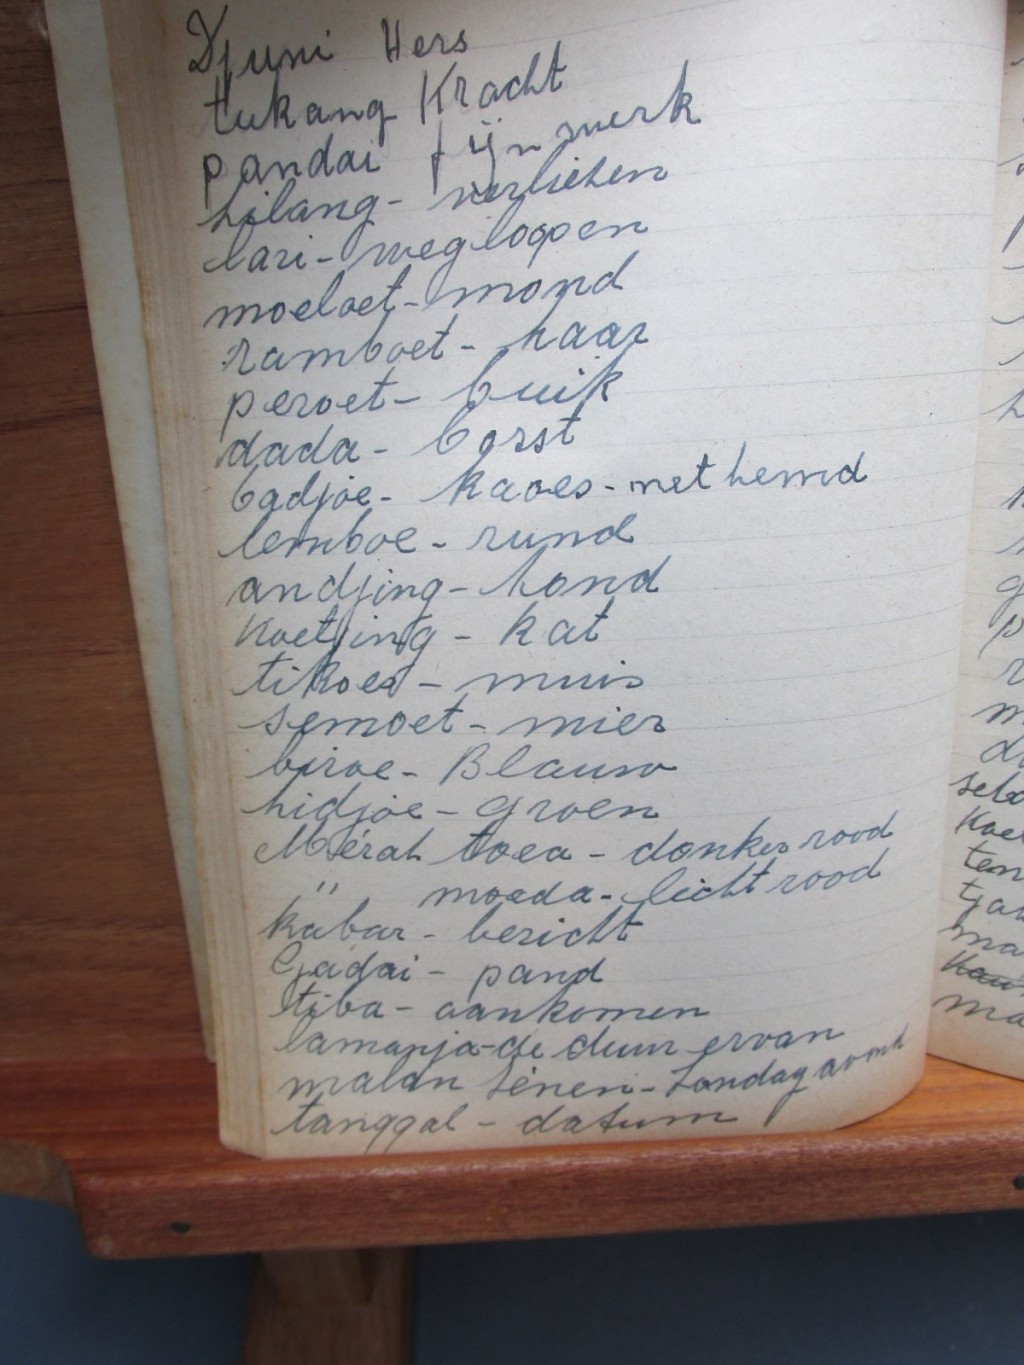 Djuni Hers
tukang Kracht
pandai fijn werk
hilang - verliezen
lari - wegloopen
moeloet - mond
ramboet - haar
peroet - buik
dada - borst
badjoe - kaoes - net hemd
lemboe - rund
andjing - hond
Koetjing - kat
tikoes - muis
semoet - mier
biroe - Blauw
hidjoe - groen
Mérah toea - donker rood
" moeda - licht rood
kabar - bericht
Gadai - pand
tiba - aankomen
lamanja - de duur ervan
malam Sénen - Zondag avond
tanggal - datum
m
d
sebo
Koe
ten
tja
ma
ma